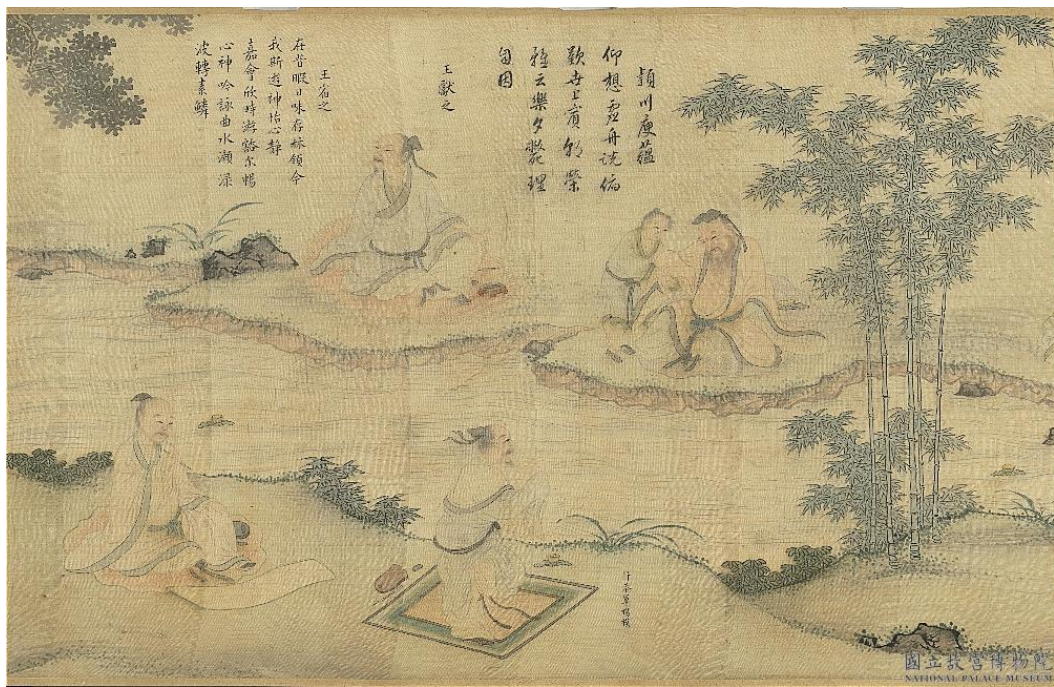 頴川庾蘊
仰想虛舟說俯
歎世上賓朝榮
雖云樂夕斃理
自因
王獻之
王肅之
在昔暇日味存林嶺今
我斯遊神怡心靜
嘉會欣時遊豁尔暢
心神吟詠曲水瀨淥
波轉素鱗
行參軍楊模
國立故宮博物院
NATIONAL PALACE MUSEUM